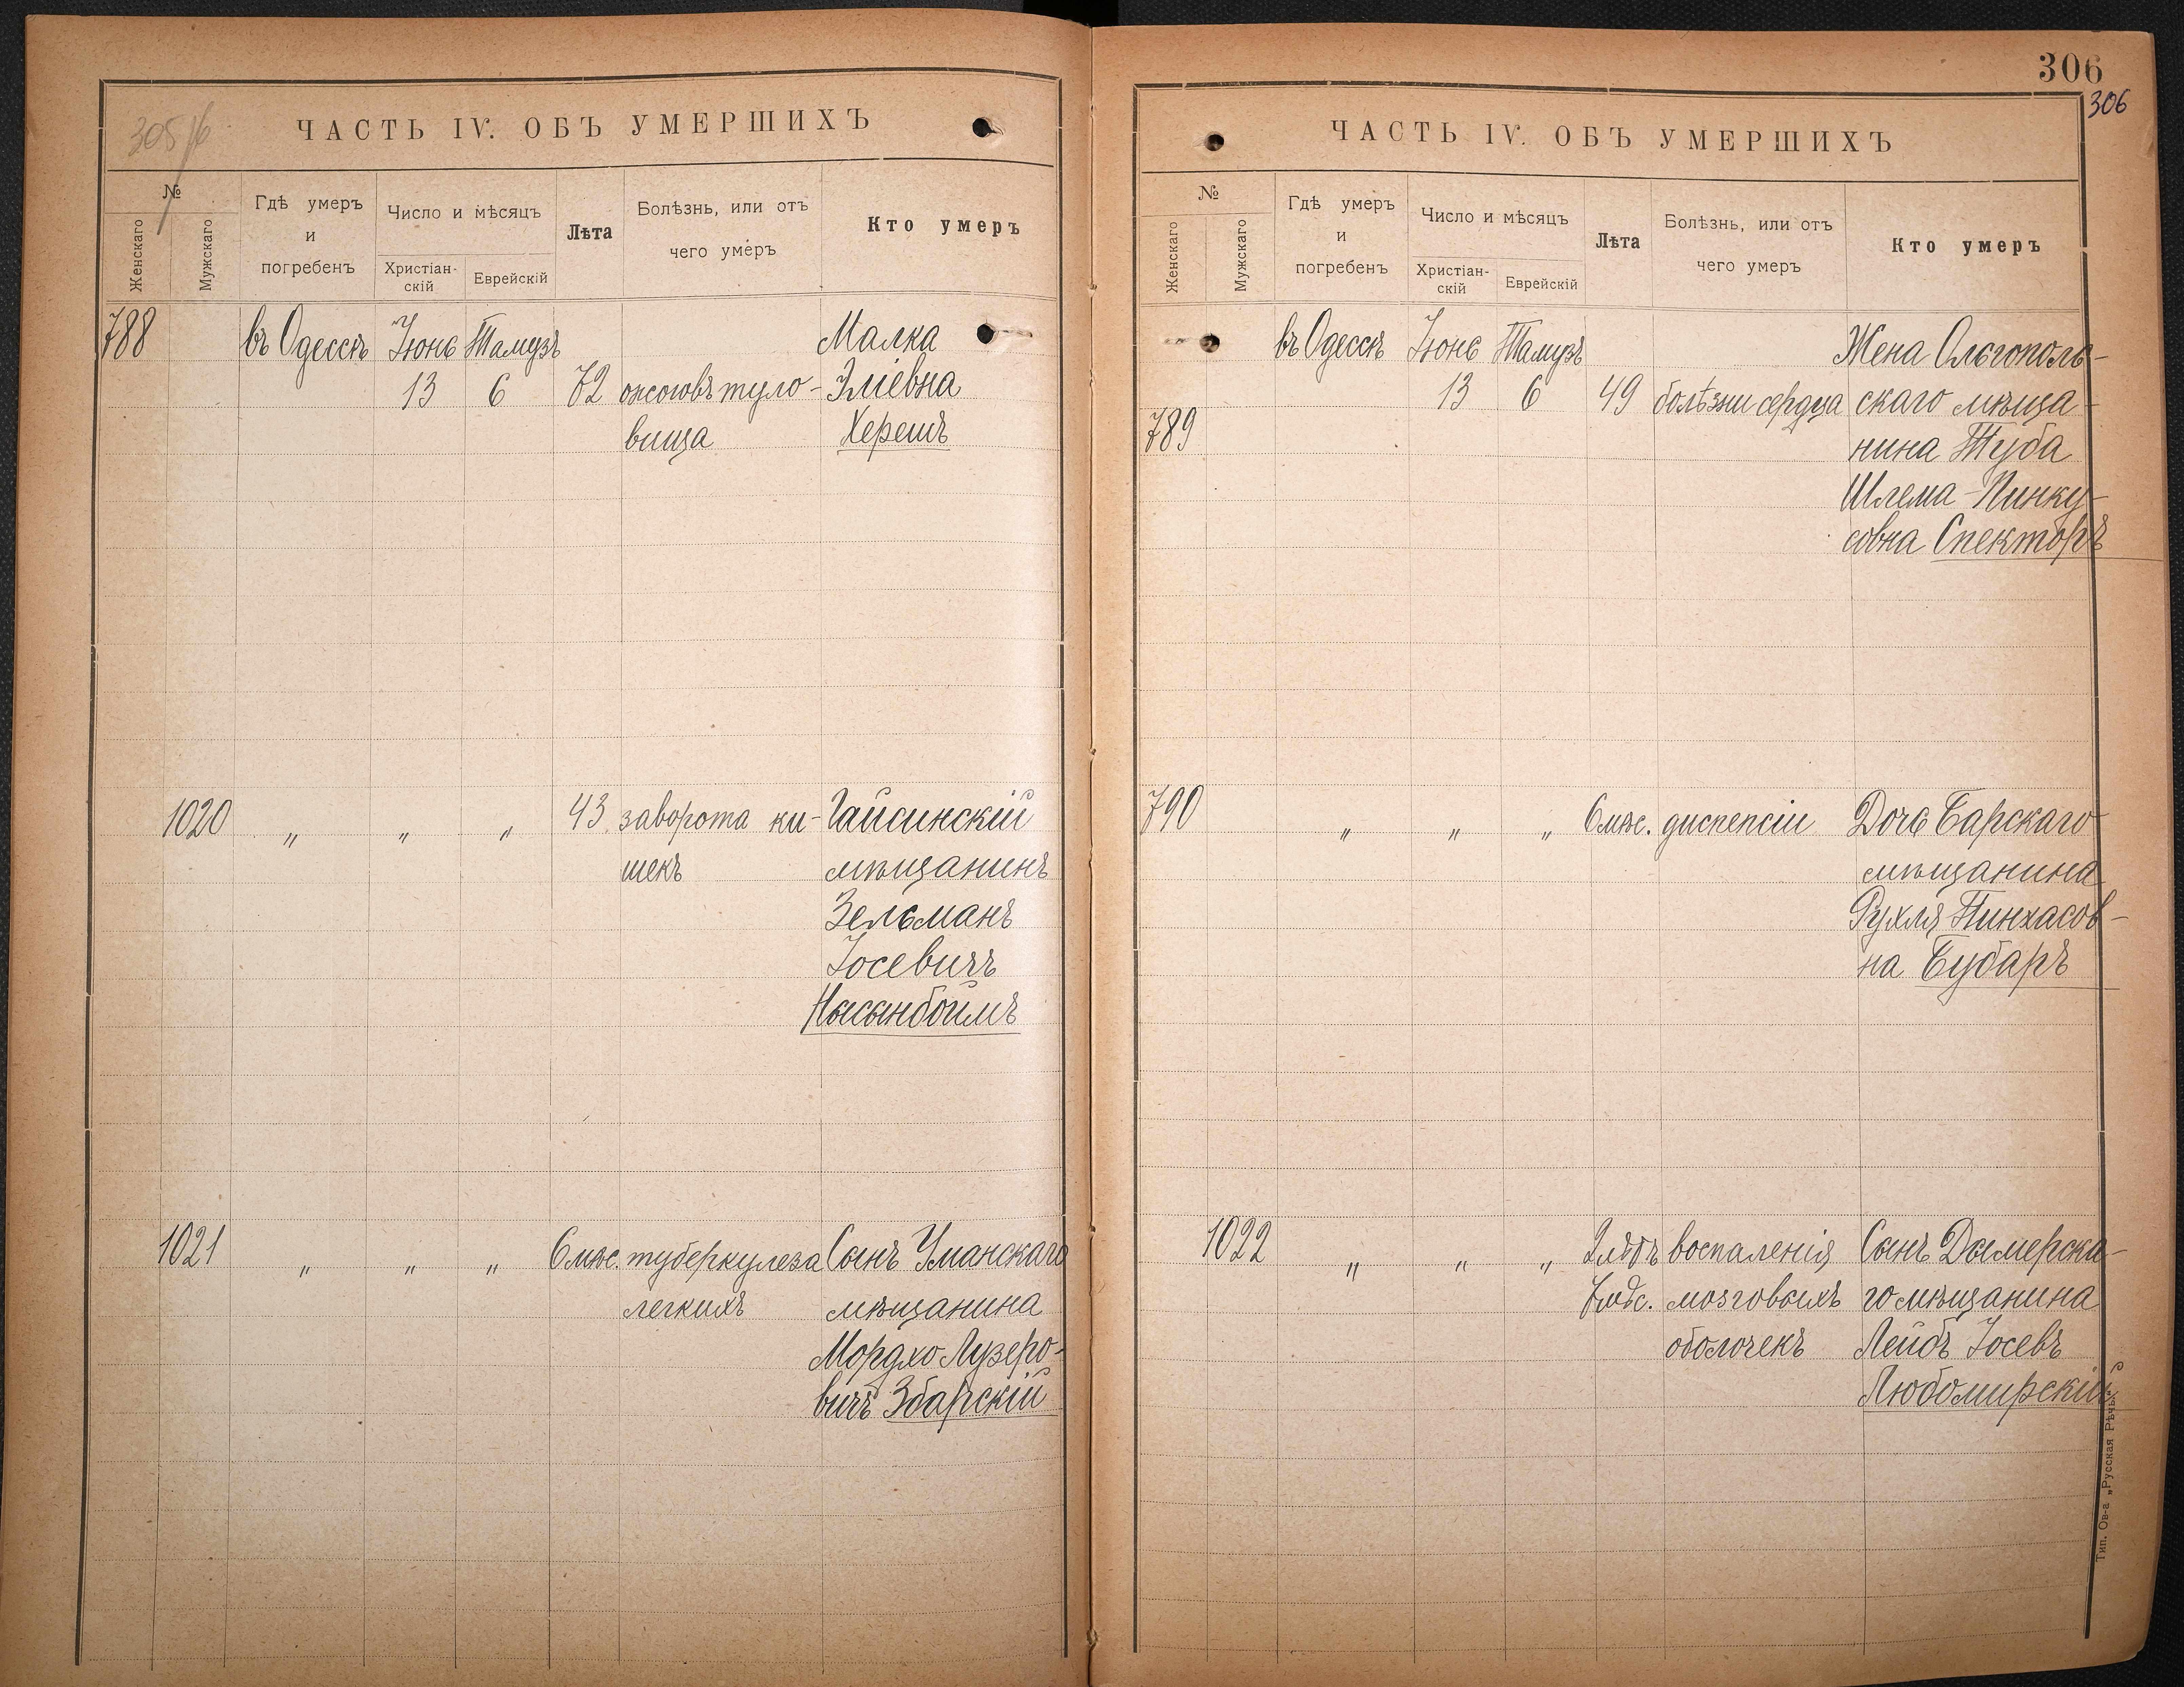 305 об
ЧАСТЬ IV. ОБЪ УМЕРШИХЪ
№
Женскаго
Мужскаго
Гдѣ умеръ
и
погребенъ
Число и мѣсяцъ
Христіан-
скій
Еврейскій
Лѣта
Болѣзнь, или отъ
чего умеръ
Кто умеръ
788 въ Одессѣ Іюнь Тамузъ Малка
13 6 72 ожоговъ туло- Эліевна
вища Херешъ
1020 „ „ „ 43 заворота ки- Гайсинскій
шекъ мѣщанинъ
Зельманъ
Іосевичъ
Нысынбоймъ
1021 „ „ „ 6 мѣс. туберкулеза Сынъ Уманскаго
легкихъ мѣщанина
Мордхо Лузеро-
вичъ Збарскій
306
306
ЧАСТЬ IV. ОБЪ УМЕРШИХЪ
№
Женскаго
Мужскаго
Гдѣ умеръ
и
погребенъ
Число и мѣсяцъ
Христіан-
скій
Еврейскій
Лѣта
Болѣзнь, или отъ
чего умеръ
Кто умеръ
въ Одессѣ Іюнь Тамузъ Жена Ольгополь-
13 6 49 болѣзни сердца скаго мѣща-
789 нина Туба
Шлема-Пинку-
совна Спекторъ
790 „ „ „ 6 мѣс. диспепсіи Дочь Барскаго
мѣщанина
Рухля Пинхасов-
на Бубаръ
1022 „ „ „ 2 лѣтъ воспаленія Сынъ Дымерска-
7 мѣс. мозговыхъ го мѣщанина
оболочекъ Лейбъ Іосевъ
Любомирскій
Тип. Ов-а „Русская Рѣчь".